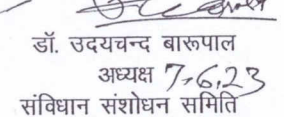 डॉ. उदयचन्द बारूपाल
अध्यक्ष 7.6.23
संविधान संशोधन समिति